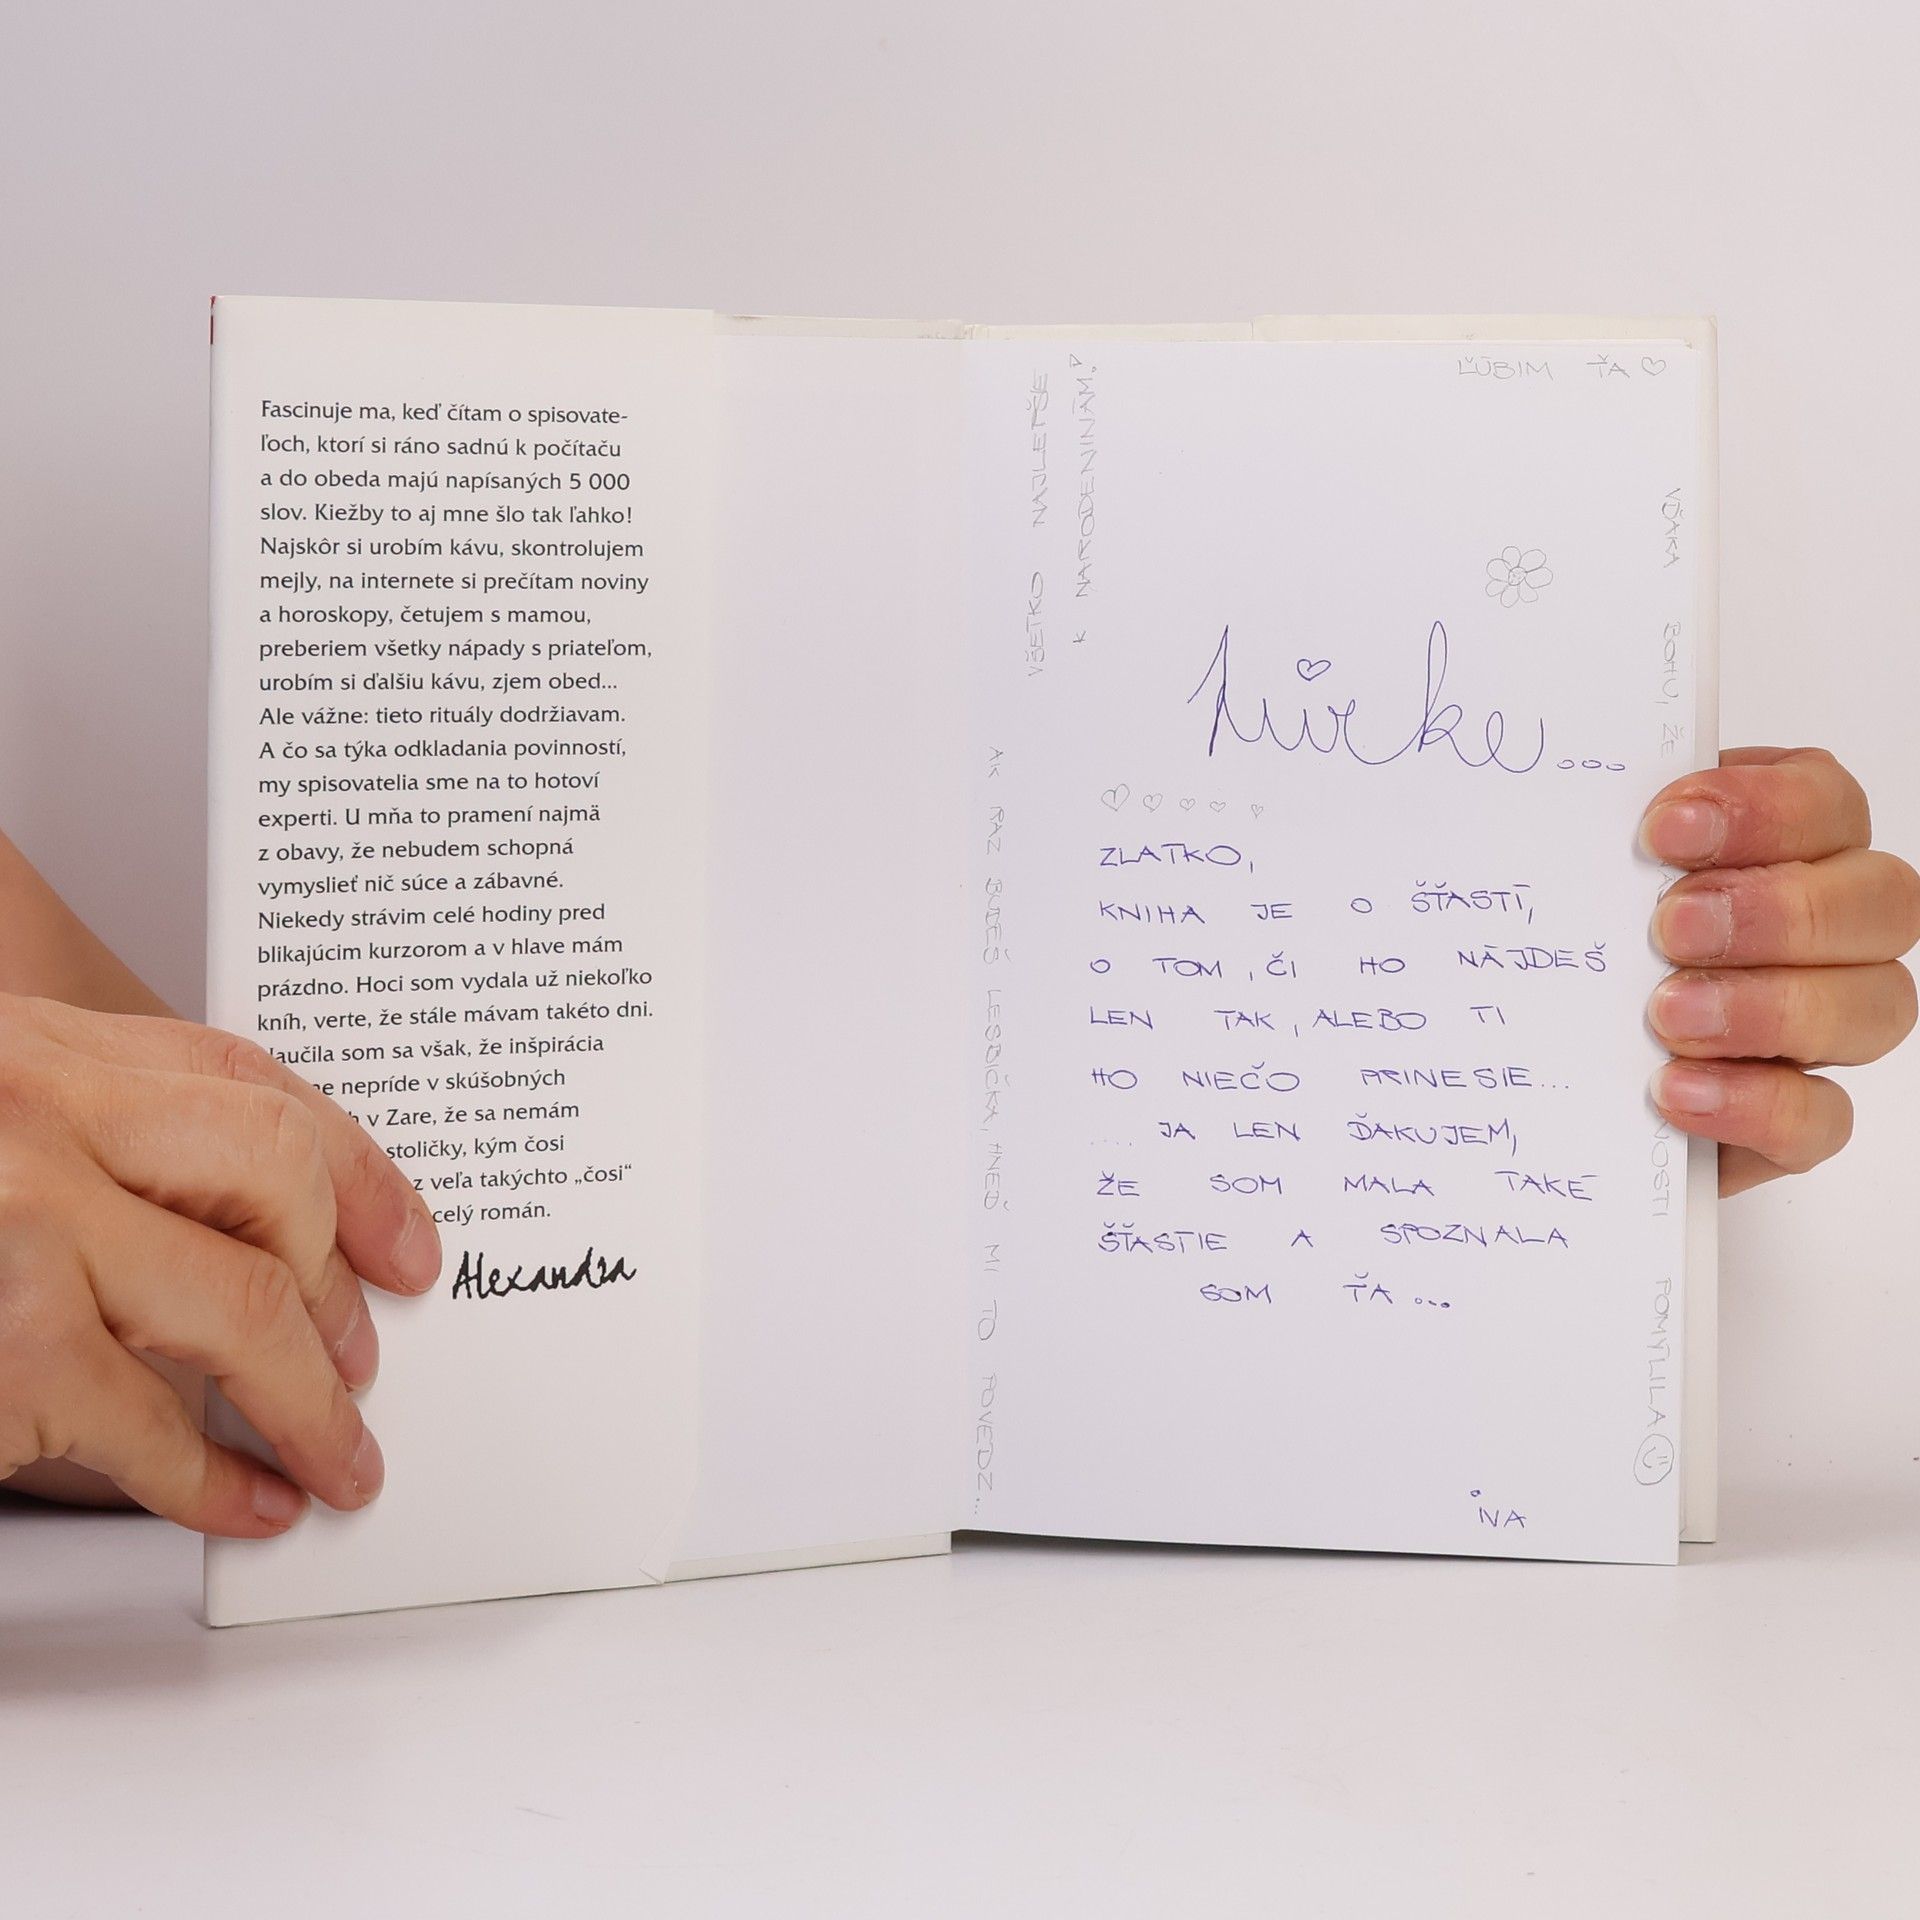 Fascinuje ma, keď čítam o spisovate-
ľoch, ktorí si ráno sadnú k počítaču
a do obeda majú napísaných 5 000
slov. Kiežby to aj mne šlo tak ľahko!
Najskôr si urobím kávu, skontrolujem
mejly, na internete si prečítam noviny
a horoskopy, četujem s mamou,
preberiem všetky nápady s priateľom,
urobím si ďalšiu kávu, zjem obed...
Ale vážne: tieto rituály dodržiavam.
A čo sa týka odkladania povinností,
my spisovatelia sme na to hotoví
experti. U mňa to pramení najmä
z obavy, že nebudem schopná
vymyslieť nič súce a zábavné.
Niekedy strávim celé hodiny pred
blikajúcim kurzorom a v hlave mám
prázdno. Hoci som vydala už niekoľko
kníh, verte, že stále mávam takéto dni.
Naučila som sa však, že inšpirácia
nepríde v skúšobných
v Zare, že sa nemám
stoličky, kým čosi
z veľa takýchto „čosi“
celý román.
Alexandra
VŠETKO NAJLEPŠIE
K NARODENINÁM!
ĽÚBIM ŤA ♡
Mirke...
ZLATKO,
KNIHA JE O ŠŤASTÍ,
O TOM, ČI HO NÁJDEŠ
LEN TAK, ALEBO TI
HO NIEČO PRINESIE...
.... JA LEN ĎAKUJEM,
ŽE SOM MALA TAKÉ
ŠŤASTIE A SPOZNALA
SOM ŤA...
IVA
AK RAZ BUDEŠ LESBIČKA, HNEĎ MI TO POVEDZ...
VĎAKA BOHU, ŽE POMÝLILA